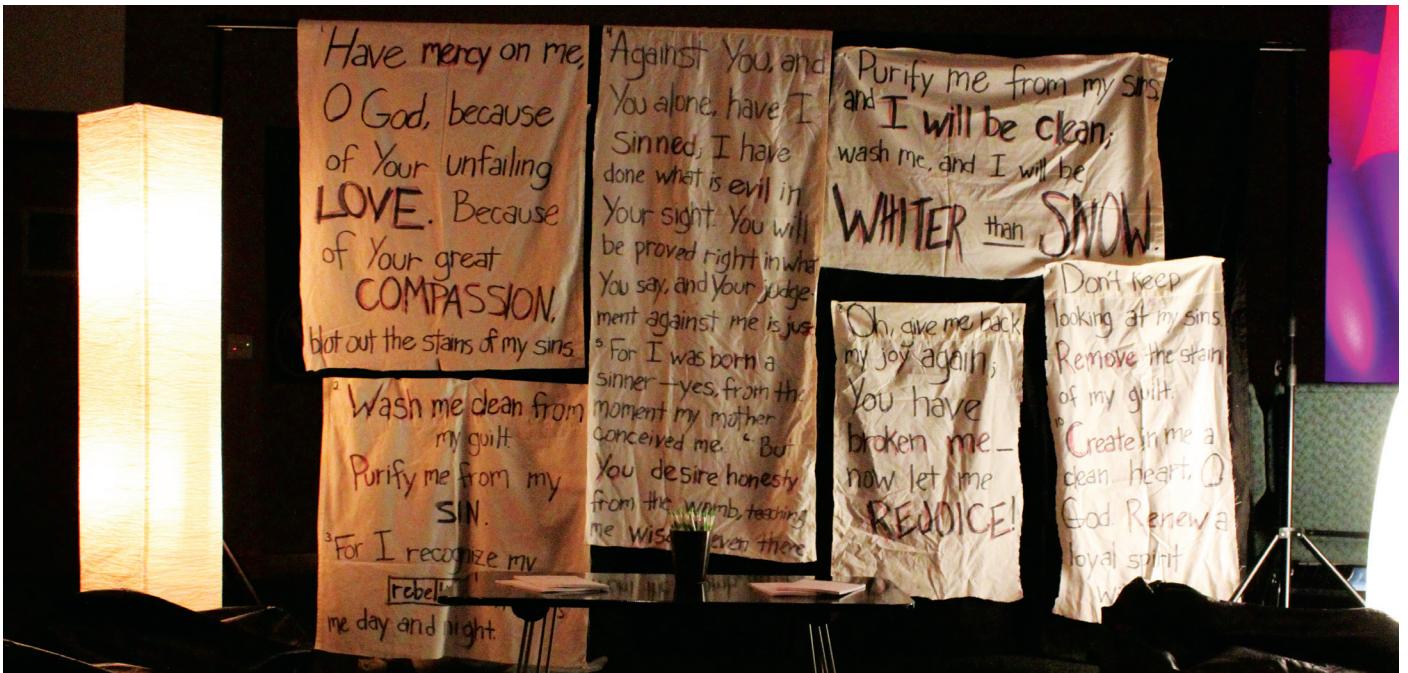 1 Have mercy on me,
O God, because
of Your unfailing
LOVE. Because
of Your great
COMPASSION,
blot out the stains of my sins.
2 Wash me clean from
my guilt.
Purify me from my
SIN.
3 For I recognize my
rebel
me day and night.
4 Against You, and
You alone, have I
Sinned; I have
done what is evil in
Your sight. You will
be proved right in what
You say, and Your judge-
ment against me is just.
5. For I was born a
sinner—yes, from the
moment my mother
conceived me. 6 But
You desire honesty
from the womb, teaching
me even there
Purify me from my sins,
and I will be clean;
wash me, and I will be
WHITER than SNOW.
8 Oh, give me back
my joy again;
You have
broken me—
now let me
REJOICE!
Don't keep
looking at my sins.
Remove the stain
of my guilt.
10 Create in me a
clean heart, O
God. Renew a
loyal spirit